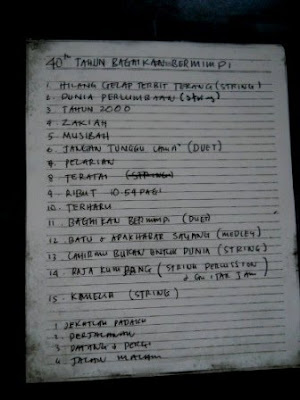 40th TAHUN BAGAIKAN BERMIMPI
1. HILANG GELAP TERBIT TERANG (STRING)
2. DUNIA PERLUMBAAN (String)
3. TAHUN 2000
4. ZAKIAH
5. MUSIBAH
6. JANGAN TUNGGU LAMA² (DUET)
7. PELARIAN
8. TERATAI (STRING)
9. RIBUT 10.54 PAGI
10. TERHARU
11. BAGAIKAN BERMIMPI (DUET)
12. BATU & APAKHABAR SAYANG (MEDLEY)
13. LAHIRMU BUKAN UNTUK DUNIA (STRING)
14. RAJA KUMBANG (STRING PERCUSSION
& GUITAR JAM)
15. KAMELIA (STRING)
1 DEKATLAH PADAKU
2 PERJALANAN
3 DATANG & PERGI
4 JALAN MALAM